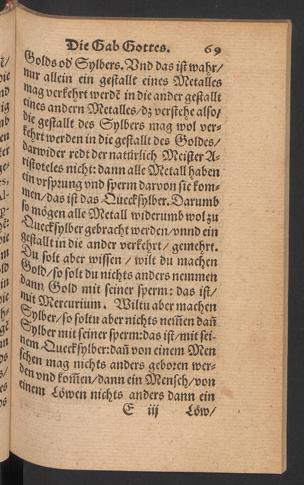 Die Gab Gottes. 69
Golds od Sylbers. Vnd das ist wahr/
nur allein ein gestallt eines Metalles
mag verkehrt werdē in die ander gestallt
eines andern Metalles/dz verstehe also/
die gestallt des Sylbers mag wol ver-
kehrt werden in die gestallt des Goldes/
darwider redt der natürlich Meister A-
ristoteles nicht: dann alle Metall haben
ein vrsprung vnd sperm darvon sie kom-
men/das ist das Quecksylber. Darumb
so mögen alle Metall widerumb wol zu
Quecksylber gebracht werden/vnnd ein
gestallt in die ander verkehrt/ gemehrt.
Du solt aber wissen/ wilt du machen
Gold/so solt du nichts anders nemmen
dann Gold mit seiner sperm: das ist/
mit Mercurium. Wiltu aber machen
Sylber/so soltu aber nichts nem̄en dañ
Sylber mit seiner sperm:das ist/mit sei-
nem Quecksylber:dañ von einem Men
schen mag nichts anders geboren wer-
den vnd kom̄en/dann ein Mensch/von
einem Löwen nichts anders dann ein
E iij Löw/